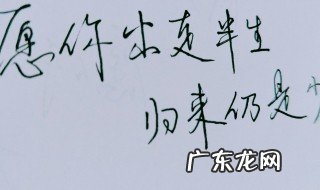 愿你出走半生
归来仍是少
广东龙网